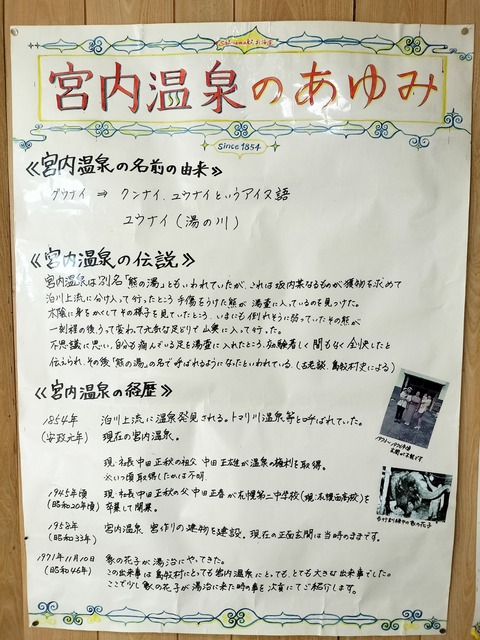 宮内温泉のあゆみ
Since 1854
《宮内温泉の名前の由来》
グウナイ ⇒ クンナイ、ユウナイというアイヌ語
ユウナイ(湯の川)
《宮内温泉の伝説》
宮内温泉は別名「熊の湯」ともいわれていたが、これは坂内某なるものが獲物を求めて
泊川上流に分け入って行ったところ手傷をうけた熊が湯壷に入っているのを見つけた。
木陰に身をかくしてその様子を見ていたところ、いまにも倒れそうに弱っていたその熊が
一刻程の後、うって変わって元気な足どりで山奥に入って行った。
不思議に思い、自分も痛んでいる足を湯壷に入れたところ、効験著しく間もなく全快したと
伝えられ、その後「熊の湯」の名で呼ばれるようになったといわれている。(古老談、島牧村史による)
《宮内温泉の経歴》
1854年 泊川上流に温泉発見される。トマリ川温泉等と呼ばれていた。
(安政元年) 現在の宮内温泉。
現・社長中田正秋の祖父 中田正雄が温泉の権利を取得。
※いつ頃取得したかは不明。
1945年頃 現・社長中田正秋の父中田正春が札幌第二中学校(現・札幌西高校)を
(昭和20年頃) 卒業して開業。
1958年 宮内温泉 宮作りの建物を建設。現在の正面玄関は当時のままです。
(昭和33年)
1971年11月10日 象の花子が湯治にやってきた。
(昭和46年) この出来事は島牧村にとっても宮内温泉にとっても、とても大きな出来事でした。
ここで少し象の花子が湯治に来た時の事を次頁にてご紹介します。